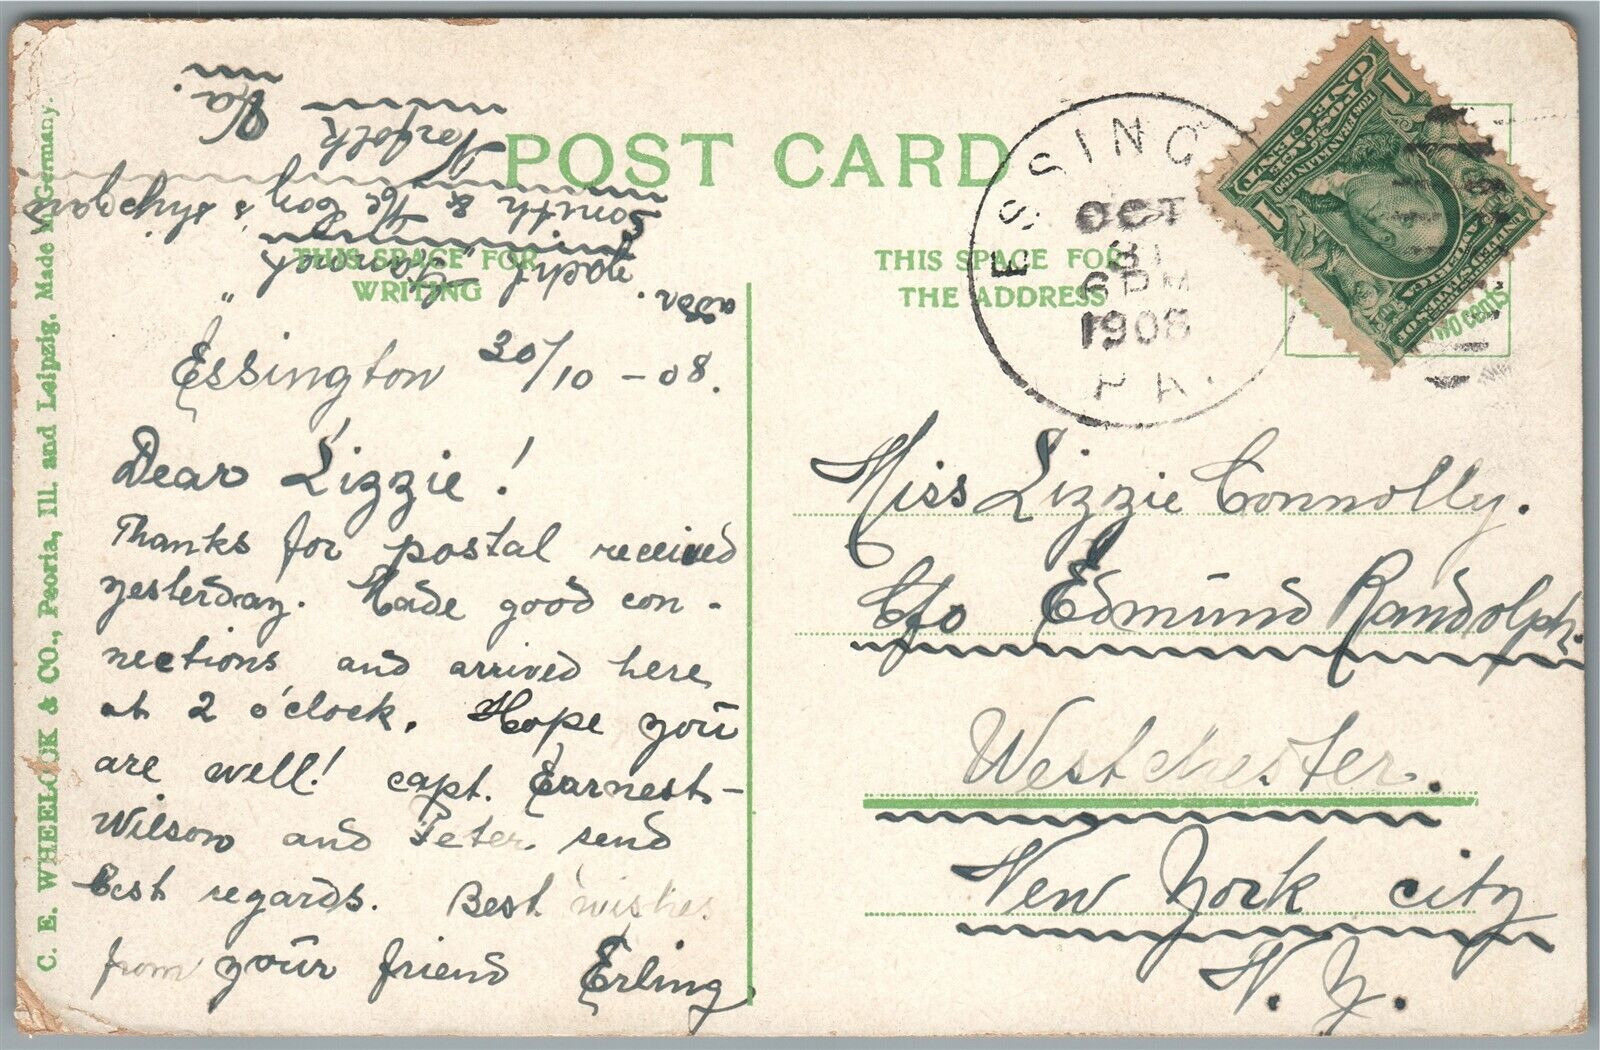 POST CARD
THIS SPACE FOR
WRITING
THIS SPACE FOR
THE ADDRESS
C. E. WHEELOCK & CO., Peoria, Ill. and Leipzig. Made in Germany.
ESSINGTON
OCT
31
6 PM
1908
PA.
two cents
addr.
Yacht
Smith & Mc Coy's shipyard
Norfolk
Va.
Essington 30/10 - 08.
Dear Lizzie!
Thanks for postal received
yesterday. Made good con-
nections and arrived here
at 2 o'clock. Hope you
are well! capt. Earnest-
Wilson and Peter send
best regards. Best wishes
from your friend Erling
Miss Lizzie Connolly.
C/o Edmund Randolph.
Westchester.
New York city
N. Y.